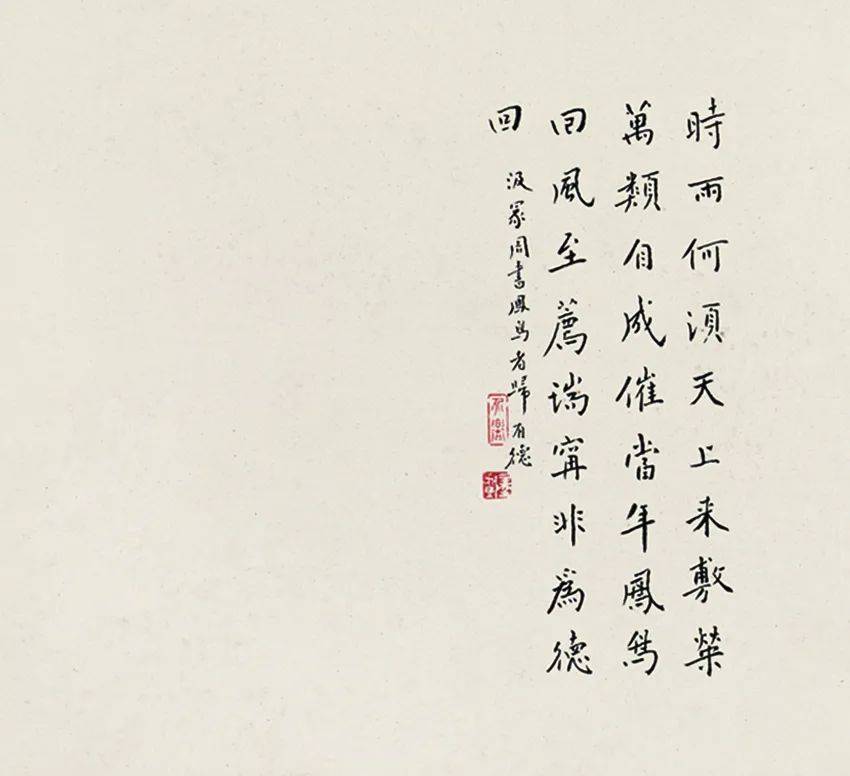 時雨何須天上来敷榮
萬類自成催當年鳳鳥
回風至薦瑞寧非為德
回
汲冢周書鳳鳥者歸有德